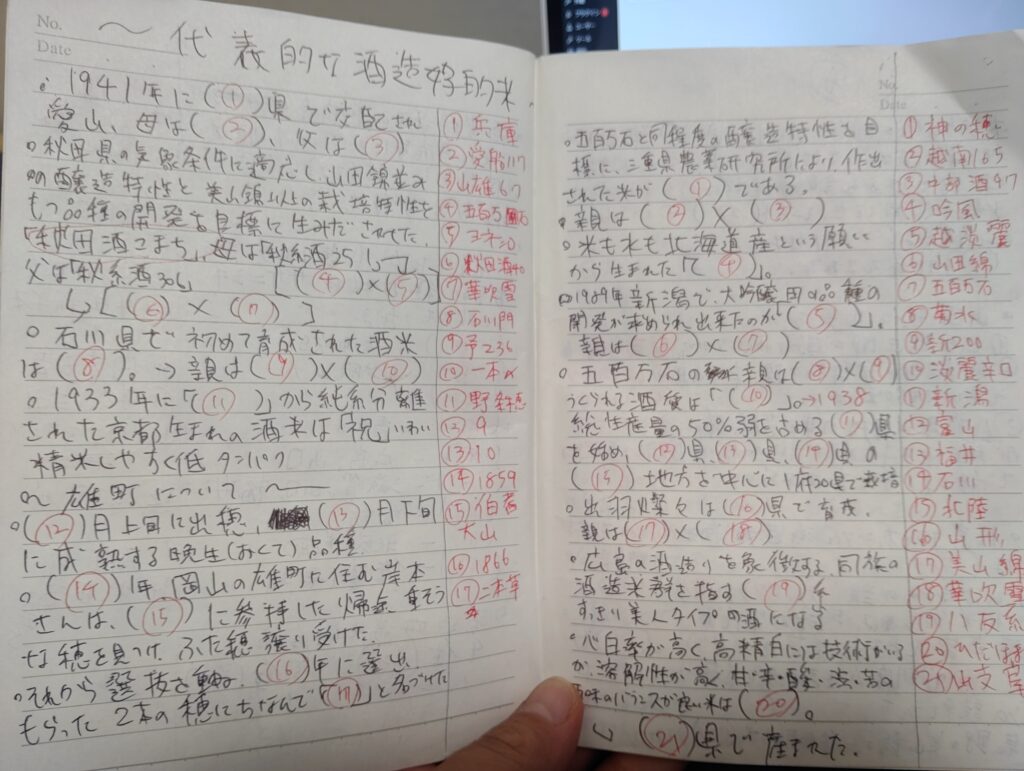 No.
Date
〜代表的な酒造好的米
1941年に(①)県で交配され
愛山、母は(②)、父は(③)
秋田県の気象条件に適応し山田錦並み
の醸造特性と美山錦以上の栽培特性を
もつ品種の開発を目標に生みだされた
「秋田酒こまち」母は「秋系酒251」
父は「秋系酒306」 [(④)×(⑤)]
↳[(⑥)×(⑦)]
○石川県で初めて育成された酒米
は(⑧)。→親は(⑨)×(⑩)
○1933年に「(⑪)」から純系分離
された京都生まれの酒米は「祝」いわい
精米しやすく低タンパク
〜雄町について〜
○(⑫)月上旬に出穂、(⑬)月下旬
に成熟する晩生(おくて)品種
○(⑭)年、岡山の雄町に住む岸本
さんは、(⑮)に参拝した帰途、重そう
な穂を見つけ、ふた穂譲り受けた
○それから選抜を重ね、(⑯)年に選出
もらった2本の穂にちなんで「(⑰)」と名づけた
①兵庫
②愛船117
③山雄67
④五百万石
⑥秋田酒
⑦華吹雪
⑧石川門
⑨予236
⑩一本〆
⑪野条穂
⑫9
⑬10
⑭1859
⑮伯耆
大山
⑯1866
⑰二本草
No.
Date
○五百万石と同程度の醸造特性を目
標に、三重県農業研究所により作出
された米が(①)である。
親は(②)×(③)
○米も水も北海道産という願い
から生まれた「(④)」。
1989年新潟で、大吟醸用の品種の
開発が求められ出来たのが「(⑤)」。
親は(⑥)×(⑦)
○五百万石の親は(⑧)×(⑨)
つくられる酒質は「(⑩)」。→1938
総生産量の50%弱を占める(⑪)県
を始め、(⑫)県、(⑬)県、(⑭)県の
(⑮)地方を中心に1府20県で栽培
○出羽燦々は(⑯)県で育成。
親は(⑰)×(⑱)
○広島の酒造りを象徴する、同族の
酒造米群を指す(⑲)系
すっきり美人タイプの酒になる
○心白率が高く、高精白には技術がいる
が、溶解性が高く、甘・辛・酸・渋・苦の
五味のバランスが良い米は(⑳)。
↳(㉑)県で産まれた。
①神の穂
②越南165
③中部酒97
④吟風
⑤越淡麗
⑥山田錦
⑦五百万石
⑧菊水
⑨新200
⑩淡麗辛口
⑪新潟
⑫富山
⑬福井
⑭石川
⑮北陸
⑯山形
⑰美山錦
⑱華吹雪
⑲八反系
⑳ひだほまれ
㉑岐阜